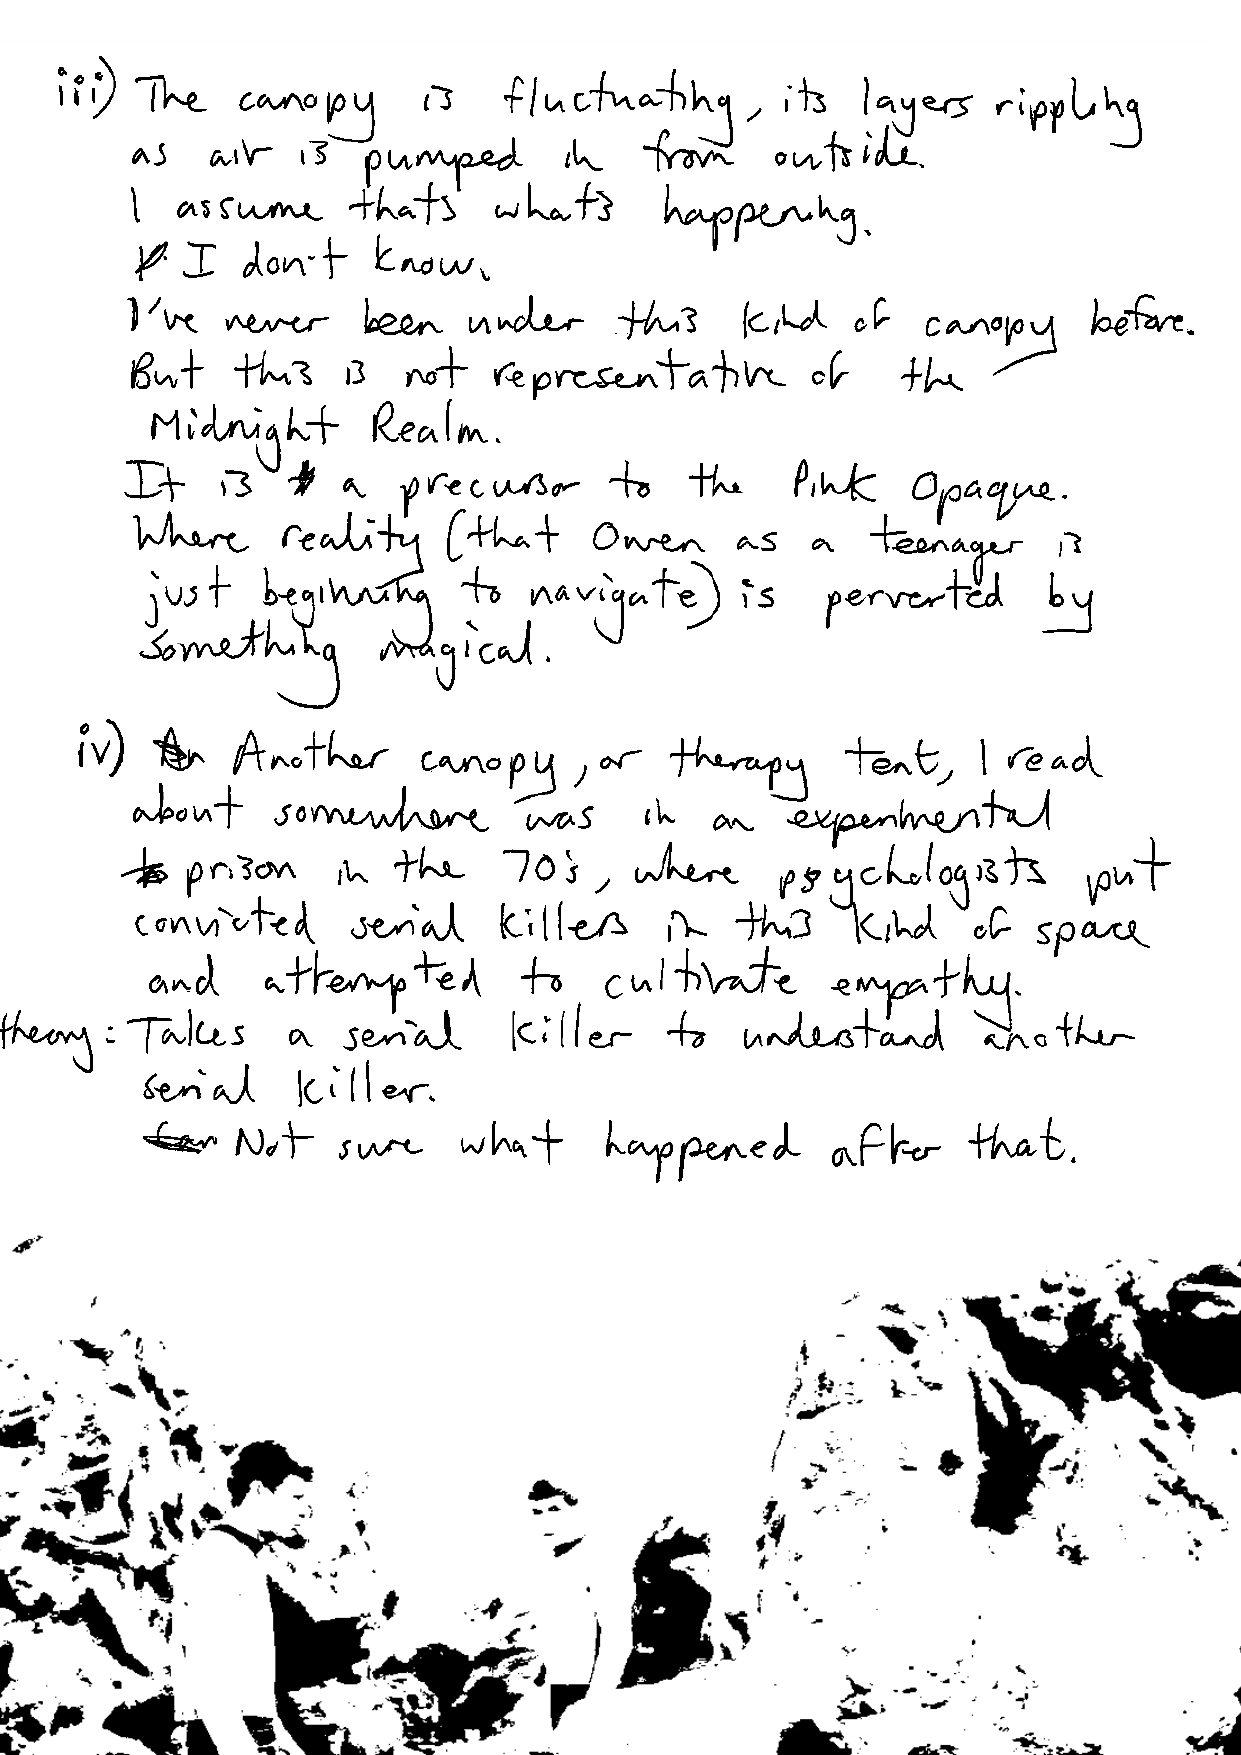 iii) The canopy is fluctuating, its layers rippling
as air is pumped in from outside.
I assume thats whats happening.
I don't know.
I've never been under this kind of canopy before.
But this is not representative of the
Midnight Realm.
It is a precursor to the Pink Opaque.
Where reality (that Owen as a teenager is
just beginning to navigate) is perverted by
something magical.
iv) Another canopy, or therapy tent, I read
about somewhere was in an experimental
prison in the 70's, where psychologists put
convicted serial killers in this kind of space
and attempted to cultivate empathy.
theory: Takes a serial killer to understand another
serial killer.
Not sure what happened after that.